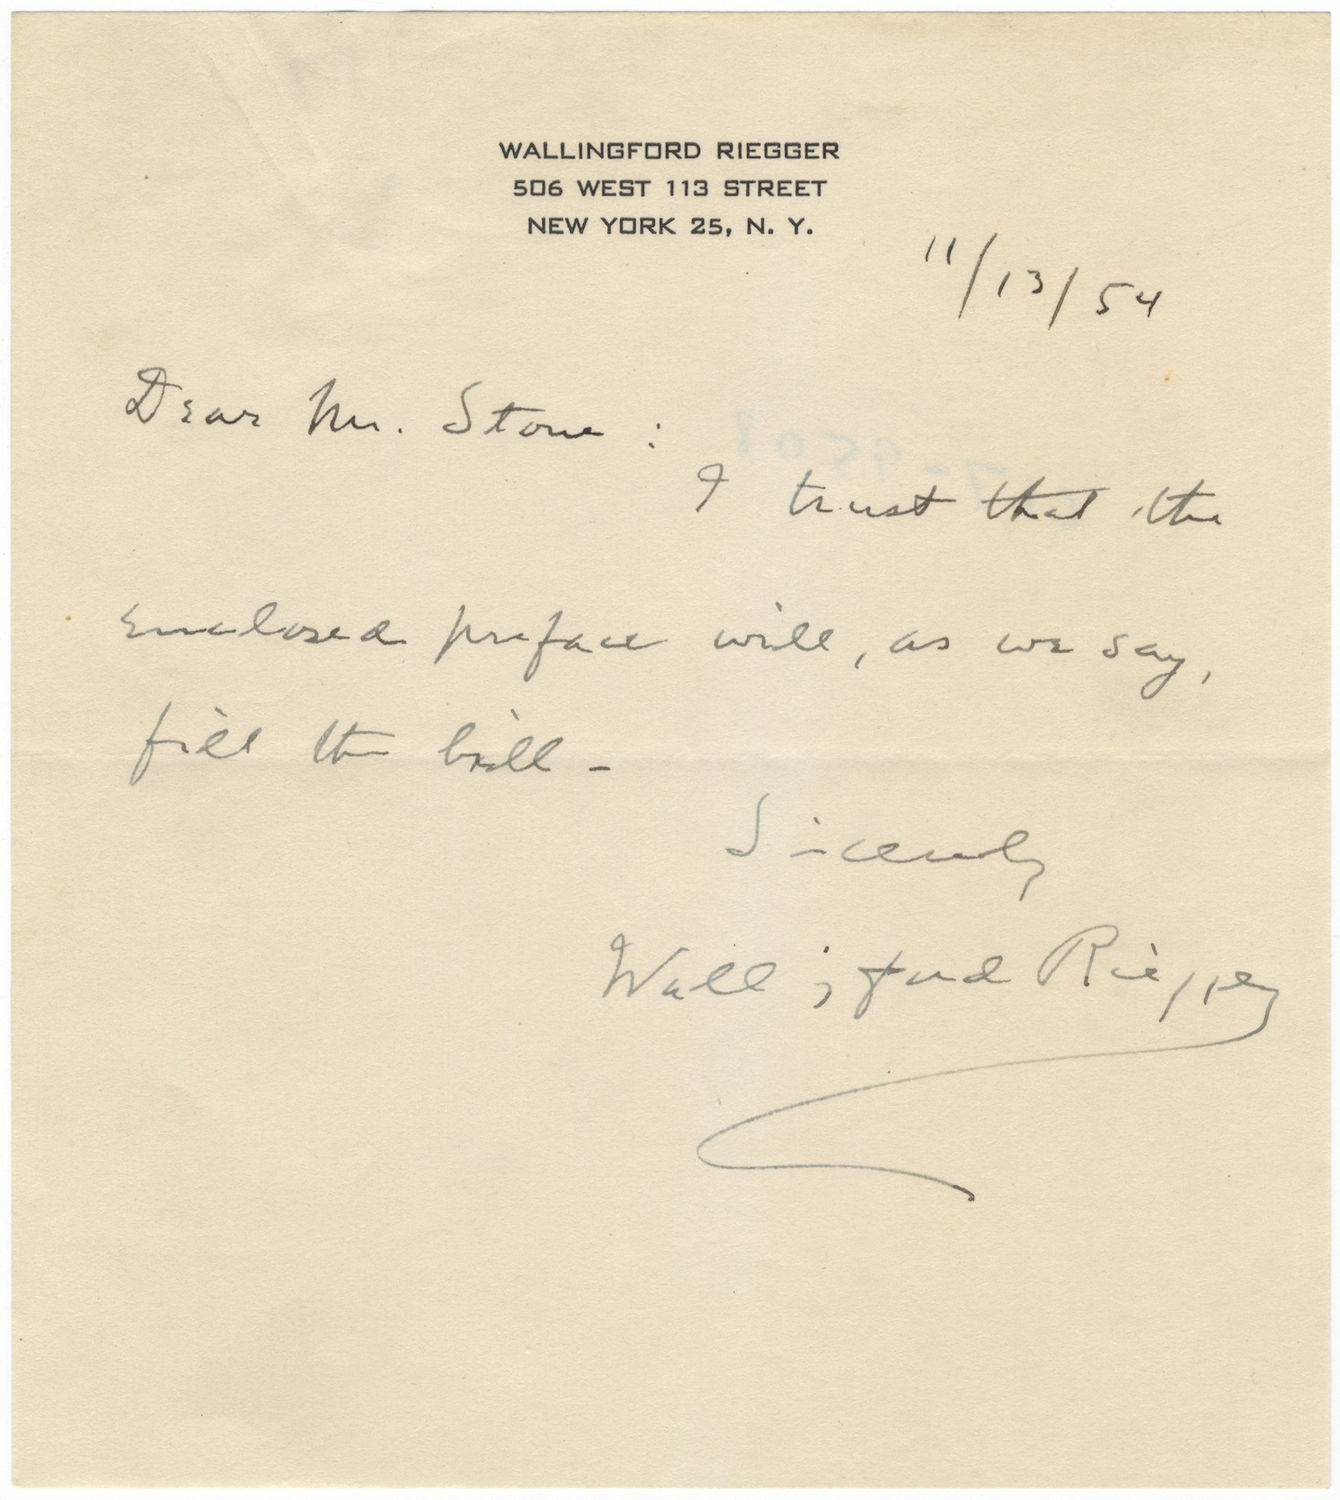 WALLINGFORD RIEGGER
506 WEST 113 STREET
NEW YORK 25, N. Y.
11/13/54
Dear Mr. Stone:
I trust that the
enclosed preface will, as we say,
fill the bill –
Sincerely
Wallingford Riegger